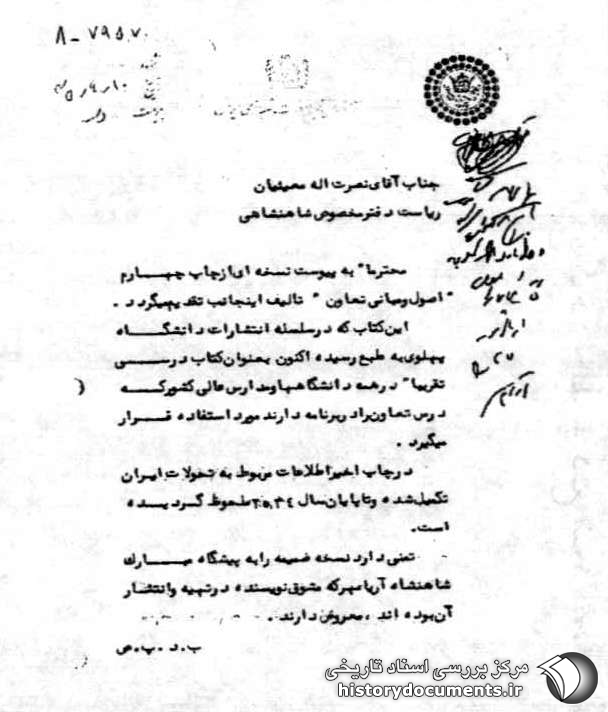 ۸ـ ۷۹۵۷۰
جناب آقای نصرت اله معینیان
ریاست دفتر مخصوص شاهنشاهی
محترما" به پیوست نسخه ای از چاپ چهارم
"اصول و مبانی تعاون" تالیف اینجانب تقدیم میگردد .
این کتاب که در سلسله انتشارات دانشگاه
پهلوی به طبع رسیده اکنون بعنوان کتاب درسی
تقریبا" در همه دانشگاهها و مدارس عالی کشور که
درس تعاون را در برنامه دارند مورد استفاده قرار
میگیرد .
در چاپ اخیر اطلاعات مربوط به تحولات ایران
تکمیل شده و تا پایان سال ۲۵۳۴ ملحوظ گردیده
است.
تمنی دارد نسخه ضمیمه را به پیشگاه مبارک
شاهنشاه آریامهر که مشوق نویسنده در تهیه و انتشار
آن بوده اند ، معروض دارند .
ب . د . پ . ص
مرکز بررسی اسناد تاریخی
historydocuments.ir